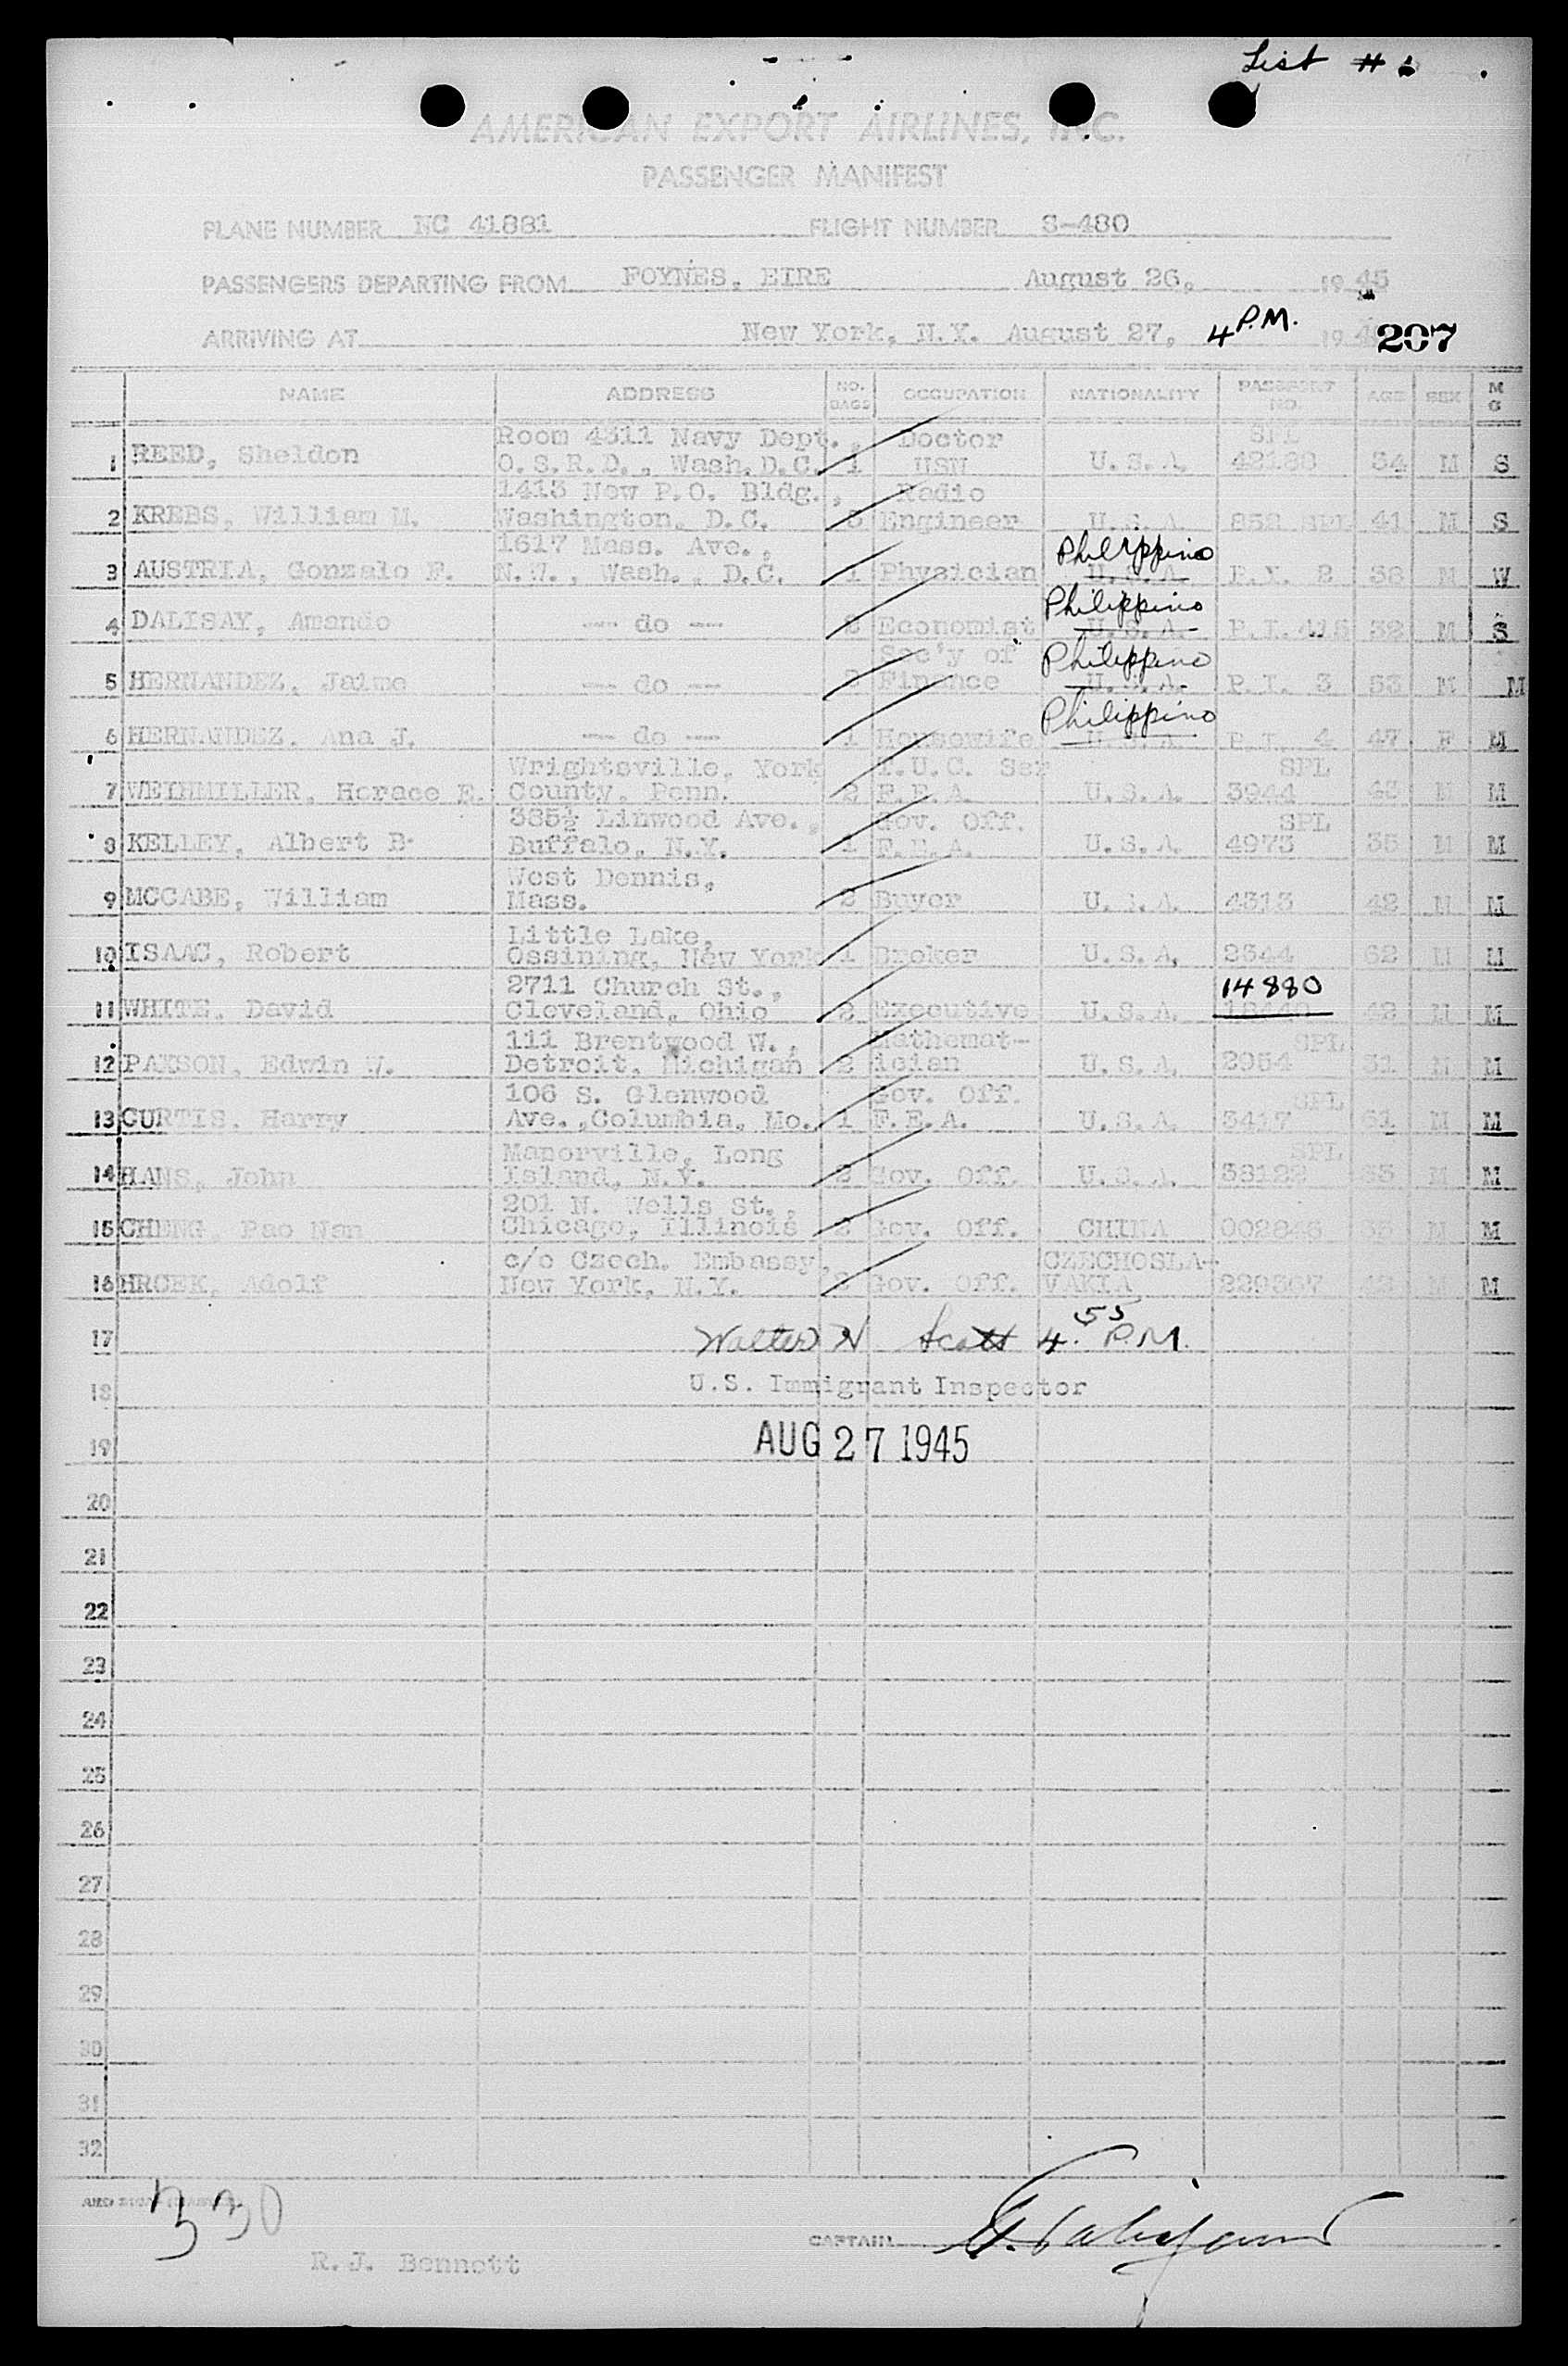 List #
AMERICAN EXPORT AIRLINES, INC.
PASSENGER MANIFEST
PLANE NUMBER NC 41881 FLIGHT NUMBER S-480
PASSENGERS DEPARTING FROM FOYNES, EIRE August 26, 1945
ARRIVING AT New York, N.Y. August 27, 4 P.M. 19 207
NAME ADDRESS NO. BAGS OCCUPATION NATIONALITY PASSPORT NO. AGE SEX M S
Room 4311 Navy Dept., Doctor SPL
1 REED, Sheldon O.S.R.D., Wash.D.C. 1 USN U.S.A. 34 M S
1413 New P.O. Bldg., Radio
2 KREBS, William M. Washington, D.C. Engineer U.S.A. 858 SPL 41 M S
1617 Mass. Ave., Philippino
3 AUSTRIA, Gonzalo F. N.W., Wash., D.C. 1 Physician U.S.A. P.I. 2 38 M W
Philippino
4 DALISAY, Amando -- do -- 2 Economist U.S.A. P.I. 415 32 M S
Sec'y of Philippino
5 HERNANDEZ, Jaime -- do -- Finance U.S.A. P.I. 3 53 M M
Philippino
6 HERNANDEZ, Ana J. -- do -- 1 Housewife U.S.A. P.I. 4 47 F M
Wrightsville, York T.U.C. Ser SPL
7 WEIHMILLER, Horace E. County, Penn. 2 F.E.A. U.S.A. 3944 M M
385½ Linwood Ave., Gov. Off. SPL
8 KELLEY, Albert B. Buffalo, N.Y. 1 F.E.A. U.S.A. 4973 35 M M
West Dennis,
9 MCCABE, William Mass. 2 Buyer U.S.A. 4313 42 M M
Little Lake,
10 ISAAC, Robert Ossining, New York 1 Broker U.S.A. 2544 62 M M
2711 Church St., 14880
11 WHITE, David Cleveland, Ohio 2 Executive U.S.A. 42 M M
111 Brentwood W., Mathemat- SPL
12 PAXSON, Edwin W. Detroit, Michigan 2 ician U.S.A. 2954 31 M M
106 S. Glenwood Gov. Off. SPL
13 CURTIS, Harry Ave.,Columbia, Mo. 1 F.E.A. U.S.A. 3417 61 M M
Manorville, Long SPL
14 HANS, John Island, N.Y. 2 Gov. Off. U.S.A. 38122 M M
201 N. Wells St.,
15 CHENG, Pao Nan Chicago, Illinois 2 Gov. Off. CHINA 002846 M M
c/o Czech. Embassy, CZECHOSLA-
16 HRCEK, Adolf New York, N.Y. 2 Gov. Off. VAKIA 229367 M M
17 Walter N Scott 4.55 P.M.
18 U.S. Immigrant Inspector
19 AUG 27 1945
20
21
22
23
24
25
26
27
28
29
30
31
32
330
CAPTAIN
R.J. Bennett